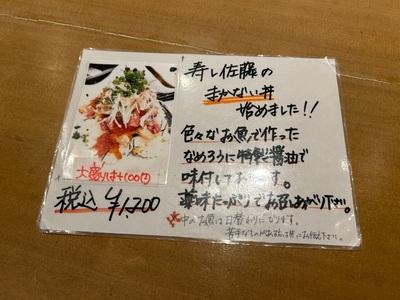 寿し佐藤の
まかない丼
始めました!!
色々なお魚で作った
なめろうに特製醤油で
味付しております。
薬味たっぷりでお召しあがり下さい。
中のお魚は日替わりになります。
苦手なものがある方は お伝え下さい。
大盛りは+100円
税込 ¥1,200